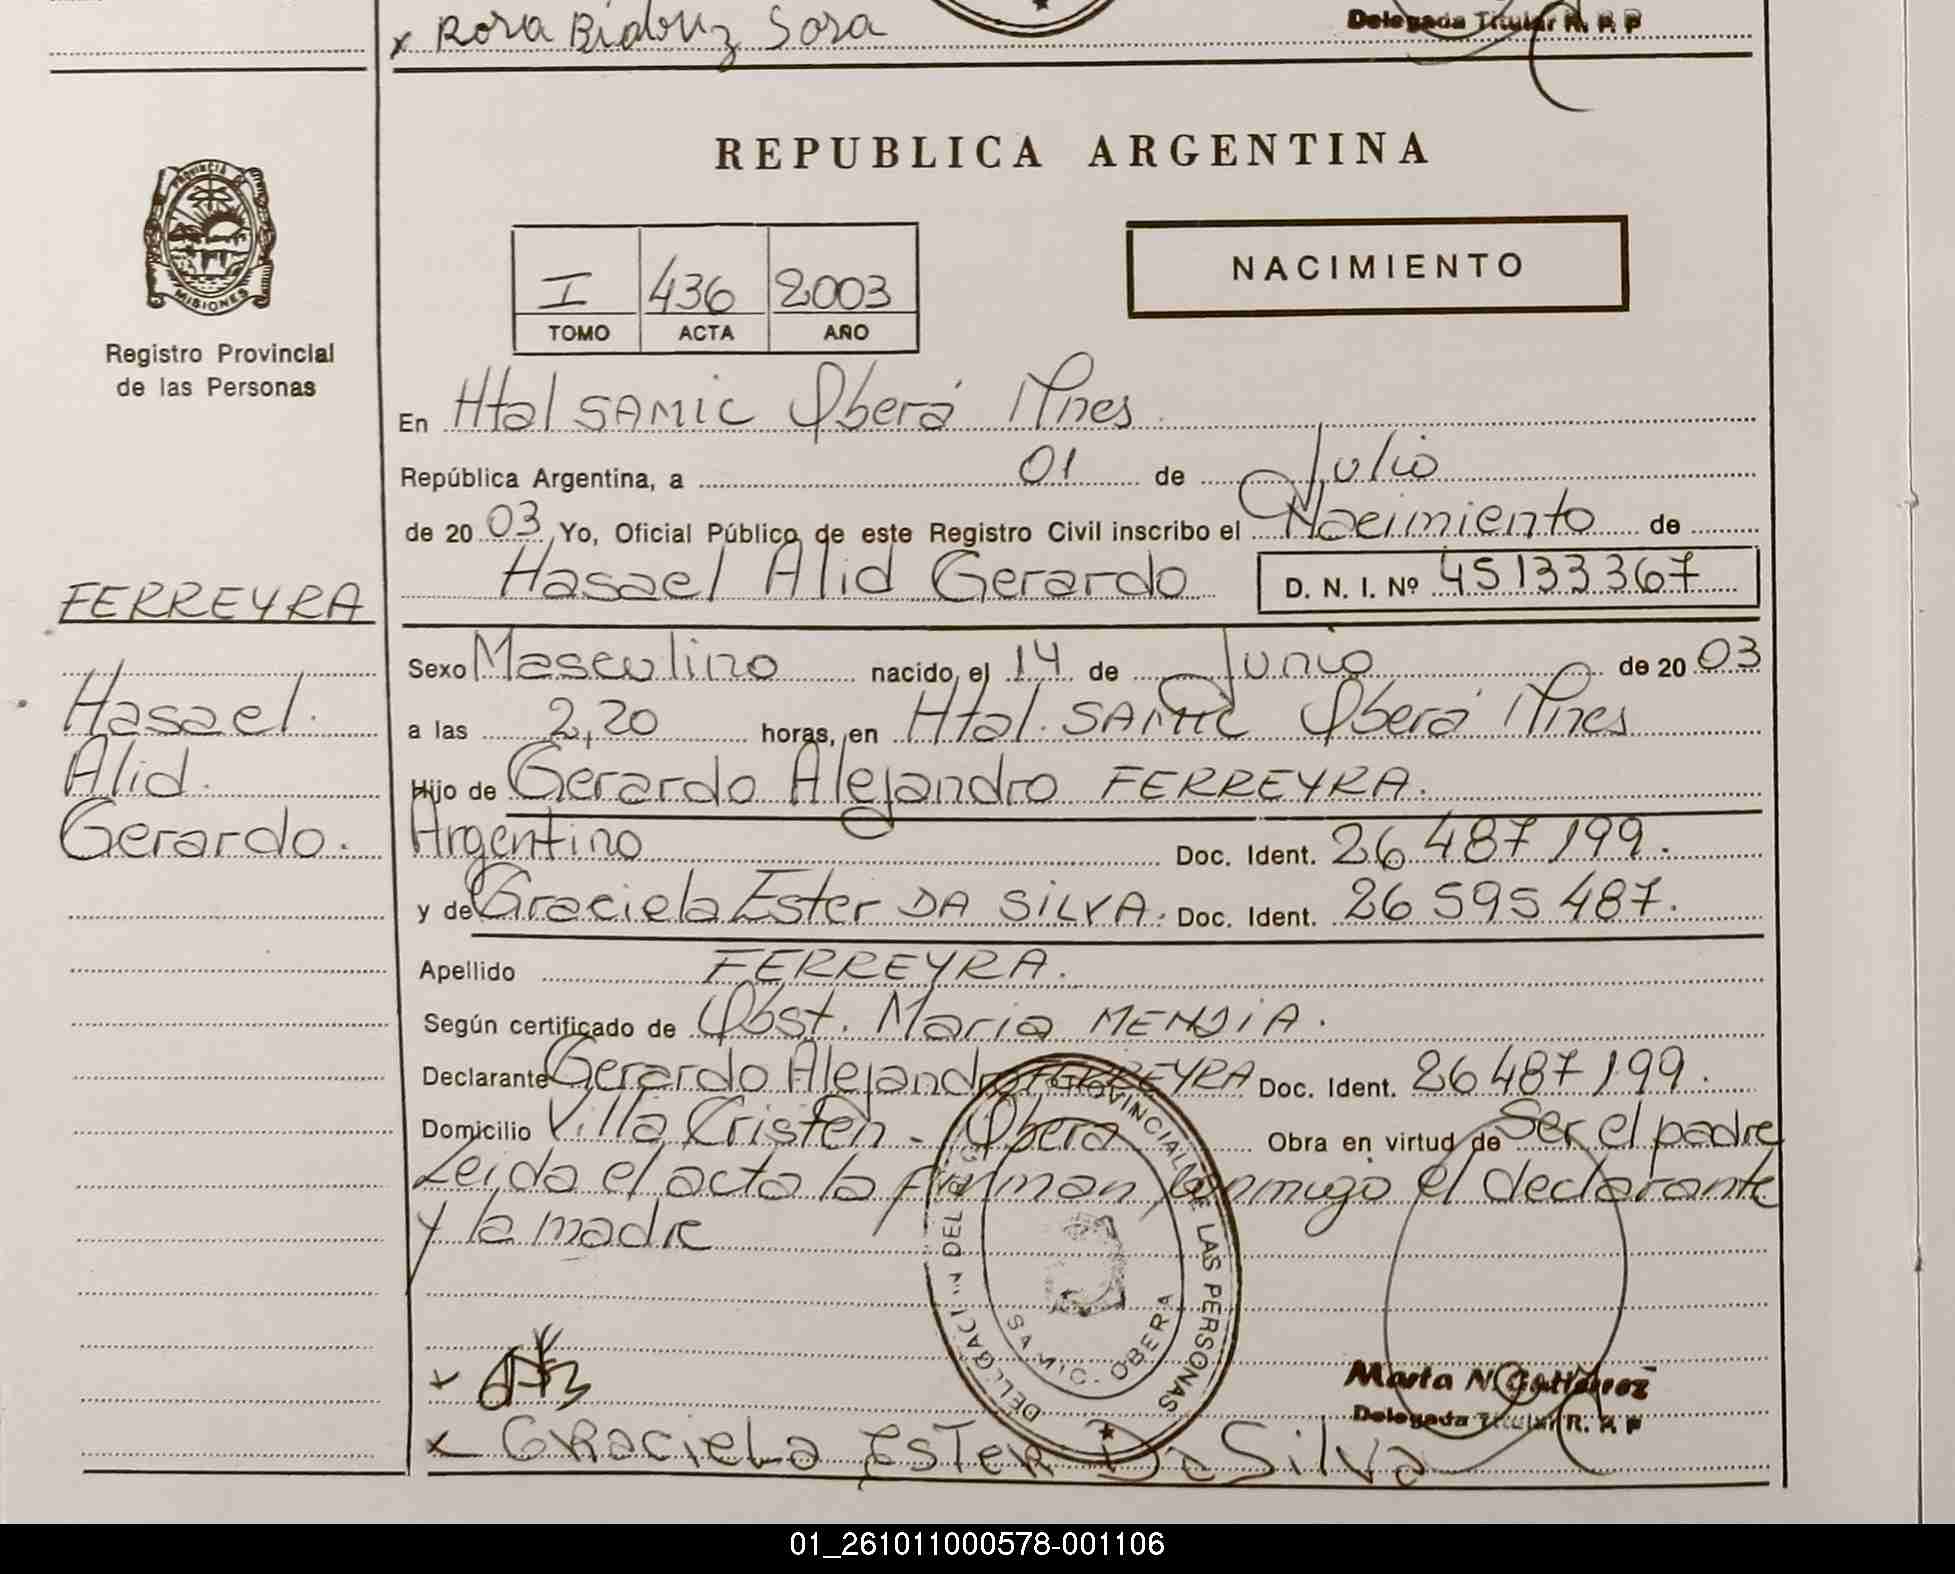 x Rosa Sosa
Delegada Titular R. P. P
PROVINCIA DE
MISIONES
Registro Provincial
de las Personas
REPUBLICA ARGENTINA
I 436 2003
TOMO ACTA AÑO
NACIMIENTO
En Htal SAMIC Oberá Mnes
República Argentina, a 01 de Julio
de 20 03 Yo, Oficial Público de este Registro Civil inscribo el Nacimiento de
Hasael Alid Gerardo D. N. I. Nº 45133367
FERREYRA
Hasael.
Alid.
Gerardo.
Sexo Masculino nacido el 14 de Junio de 20 03
a las 2,20 horas, en Htal. SAMIC Oberá Mnes
Hijo de Gerardo Alejandro FERREYRA.
Argentino Doc. Ident. 26 487 199.
y de Graciela Ester DA SILVA. Doc. Ident. 26 595 487.
Apellido FERREYRA.
Según certificado de Obst. Maria
Declarante Gerardo Alejandro FERREYRA Doc. Ident. 26 487 199.
Domicilio Villa Cristen - Oberá Obra en virtud de Ser el padre
Leida el acta la firman conmigo el declarante
y la madre
DEL LAS PERSONAS
OBERA
Marta N Gutierrez
Delegada Titular R. P. P
x
x GRACIELA ESTER Da Silva
01_261011000578-001106